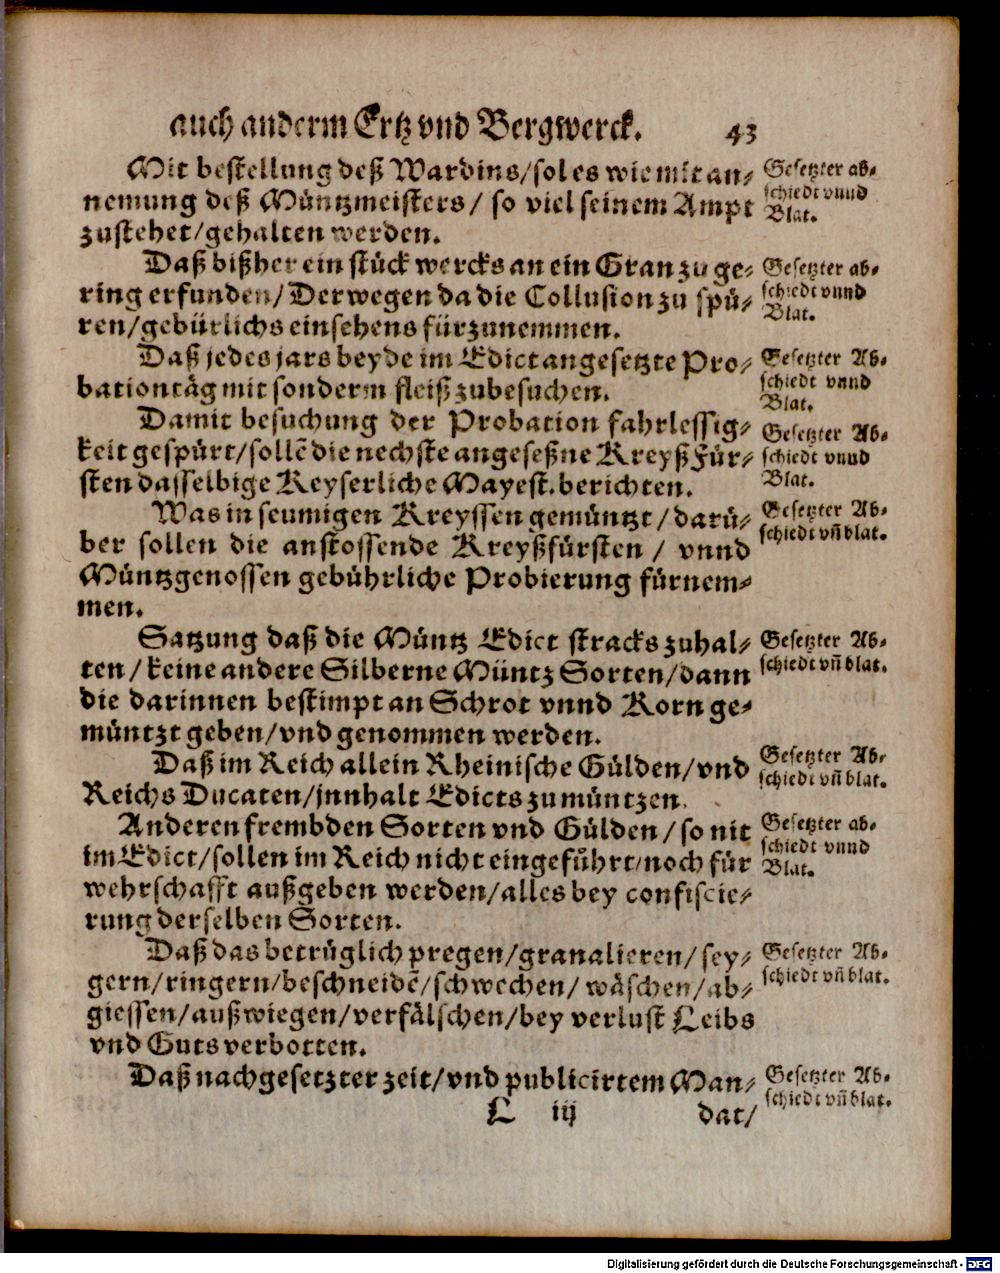 auch anderm Ertz vnd Bergwerck. 43
Mit bestellung deß Wardins/sol es wie mit an⸗
nemung deß Müntzmeisters/ so viel seinem Ampt
zustehet/gehalten werden.
Gesetzter ab⸗
schiedt vnnd
Blat.
Daß bißher ein stück wercks an ein Gran zu ge⸗
ring erfunden/Derwegen da die Collusion zu spü⸗
ren/gebürlichs einsehens fürzunemmen.
Gesetzter ab⸗
schiedt vnnd
Blat.
Daß jedes jars beyde im Edict angesetzte Pro⸗
bationtäg mit sonderm fleiß zubesuchen.
Gesetzter Ab⸗
schiedt vnnd
Blat.
Damit besuchung der Probation fahrlessig⸗
keit gespürt/sollẽ die nechste angeseßne Kreyß Für⸗
sten dasselbige Keyserliche Mayest. berichten.
Gesetzter Ab⸗
schiedt vnnd
Blat.
Was in seumigen Kreyssen gemüntzt/darü⸗
ber sollen die anstossende Kreyßfürsten / vnnd
Müntzgenossen gebührliche Probierung fürnem⸗
men.
Gesetzter Ab⸗
schiedt vñ blat.
Satzung daß die Müntz Edict stracks zuhal⸗
ten/keine andere Silberne Müntz Sorten/dann
die darinnen bestimpt an Schrot vnnd Korn ge⸗
müntzt geben/vnd genommen werden.
Gesetzter Ab⸗
schiedt vñ blat.
Daß im Reich allein Rheinische Gülden/vnd
Reichs Ducaten/jnnhalt Edicts zu müntzen.
Gesetzter Ab⸗
schiedt vñ blat.
Anderen frembden Sorten vnd Gülden/so nit
im Edict/sollen im Reich nicht eingeführt/noch für
wehrschafft außgeben werden/alles bey confiscie⸗
rung derselben Sorten.
Gesetzter ab⸗
schiedt vnnd
Blat.
Daß das betrüglich pregen/granalieren/sey⸗
gern/ringern/beschneidẽ/schwechen/wäschen/ab⸗
giessen/außwiegen/verfälschen/bey verlust Leibs
vnd Guts verbotten.
Gesetzter Ab⸗
schiedt vñ blat.
Daß nach gesetzter zeit/vnd publicirtem Man⸗
Gesetzter Ab⸗
schiedt vñ blat.
L iij dat/
Digitalisierung gefördert durch die Deutsche Forschungsgemeinschaft - DFG